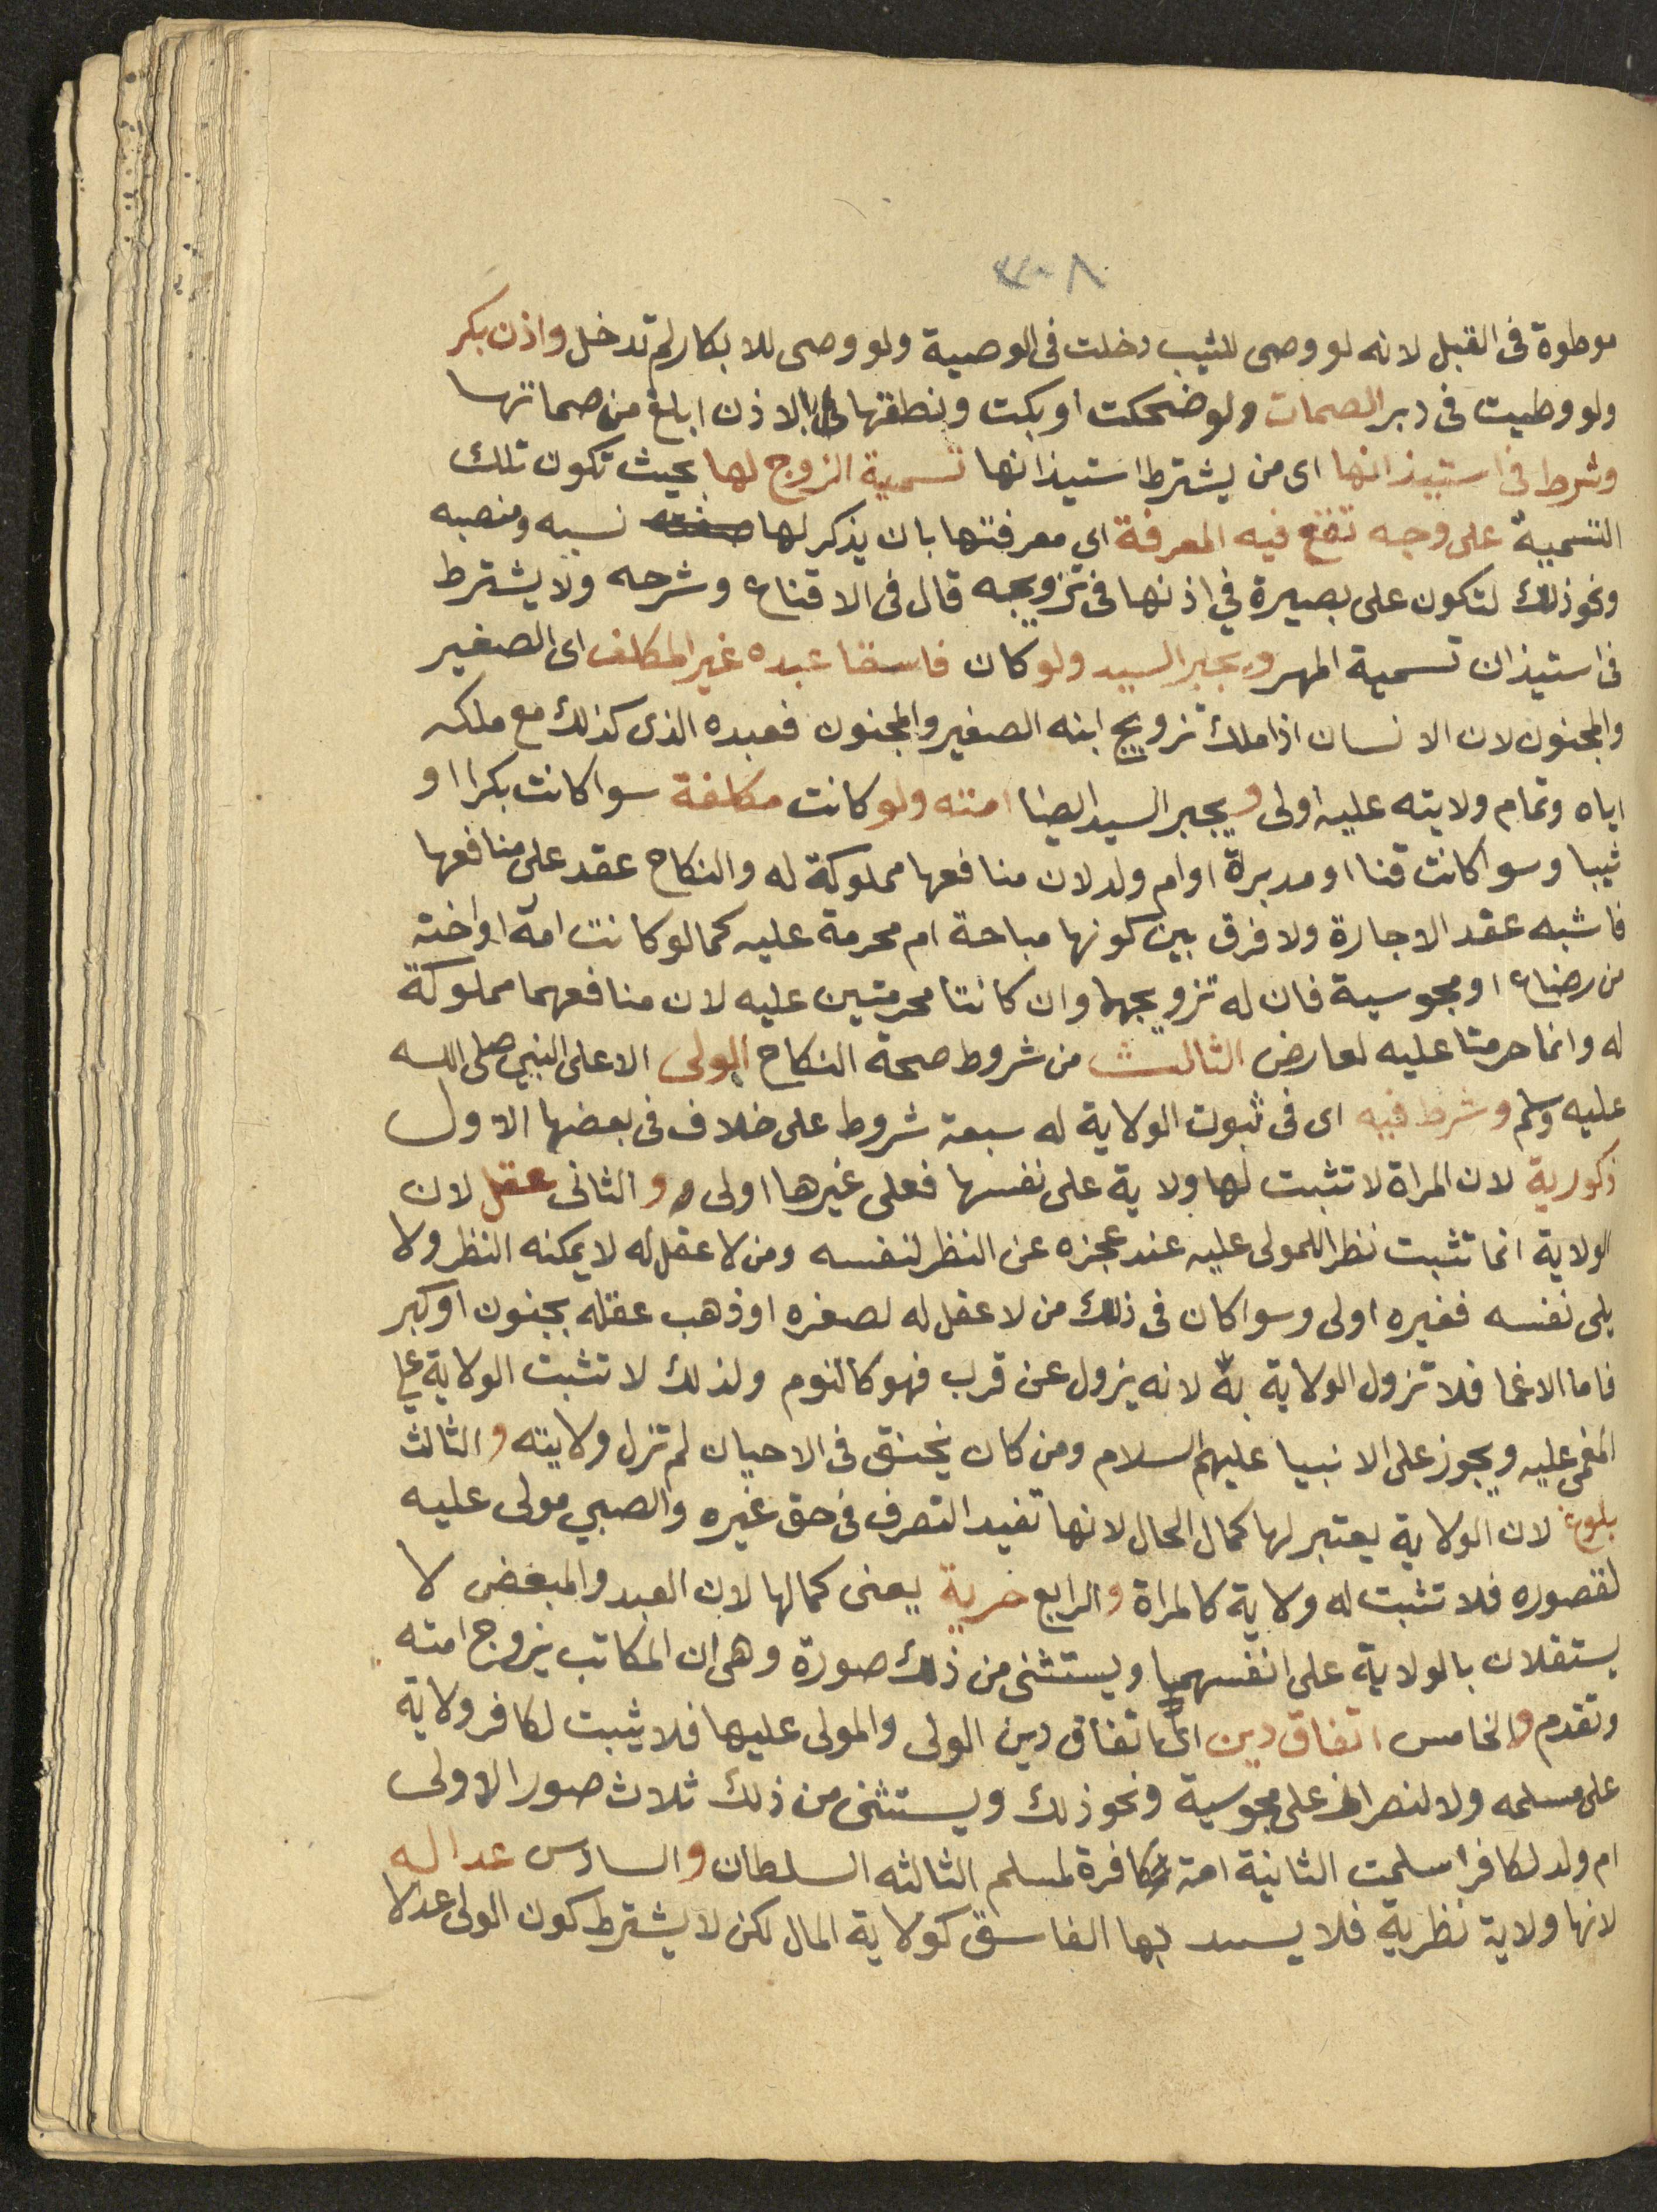 ٣٠٨
موطوة فى القبل لانه لو وصى للثيب دخلت فى الوصية ولو وصى للابكار لم تدخل واذن بكر
ولو وطيت فى دبر الصمات ولو ضحكت او بكت ونطقها بالاذن ابلغ من صماتها
وشرط فى استيذانها اى من يشترط استيذانها تسمية الزوج لها بحيث تكون تلك
التسمية على وجه تقع فيه المعرفة اي معرفتها بان يذكر لها صفته نسبه ومنصبه
ونحو ذلك لتكون على بصيرة في اذنها فى تزويجه قال فى الاقناع وشرحه ولا يشترط
فى استيذان تسمية المهر ويجبر السيد ولو كان فاسقا عبده غير المكلف اى الصغير
والمجنون لان الانسان اذا ملك تزويج ابنه الصغير والمجنون فعبده الذى كذلك مع ملكه
اياه وتمام ولايته عليه اولى ويجبر السيد ايضا امته ولو كانت مكلفة سوا كانت بكرا او
ثيبا وسوا كانت قنا او مدبرة او ام ولد لان منافعها مملوكة له والنكاح عقد على منافعها
فاشبه عقد الاجارة ولا فرق بين كونها مباحة ام محرمة عليه كما لو كانت امة اواخته
من رضاع او مجوسية فان له تزويجهما وان كانتا محرمتين عليه لان منافعهما مملوكة
له وانما حرمتا عليه لعارض الثالث من شروط صحة النكاح الولى الا على النبي صلى الله
عليه وسلم وشرط فيه اى فى ثبوت الولاية له سبعة شروط على خلاف فى بعضها الاول
ذكورية لان المراة لا تثبت لها ولاية على نفسها فعلى غيرها اولى و والثانى عقل لان
الولاية انما تثبت نظرا للمولى عليه عند عجزه عن النظر لنفسه ومن لا عقل له لا يمكنه النظر ولا
يلى نفسه فغيره اولى وسوا كان فى ذلك من لا عقل له لصغره او ذهب عقله بجنون او كبر
فاما الاغما فلا تزول الولاية به لانه يزول عن قرب فهو كالنوم ولذلك لا تثبت الولاية على
المغمى عليه ويجوز على الانبيا عليهم السلام ومن كان يخنق فى الاحيان لم تزل ولايته والثالث
بلوغ لان الولاية يعتبر لها كمال الحال لانها تفيد التصرف فى حق غيره والصبي مولى عليه
لقصوره فلا تثبت له ولاية كالمراة والرابع حرية يعنى كمالها لان العبد والمبعض لا
يستقلان بالولاية على انفسهما ويستثنى من ذلك صورة وهى ان المكاتب يزوج امته
وتقدم والخامس اتفاق دين اى اتفاق دين الولى والمولى عليها فلا يثبت لكافر ولاية
على مسلمه ولا لنصرانى على مجوسية ونحو ذلك ويستثنى من ذلك ثلاث صور الاولى
ام ولد لكافر اسلمت الثانية امة كافرة لمسلم الثالثه السلطان والسادس عداله
لانها ولاية نظرية فلا يستبد بها الفاسق كولاية المال لكن لا يشترط كون الولى عدلا